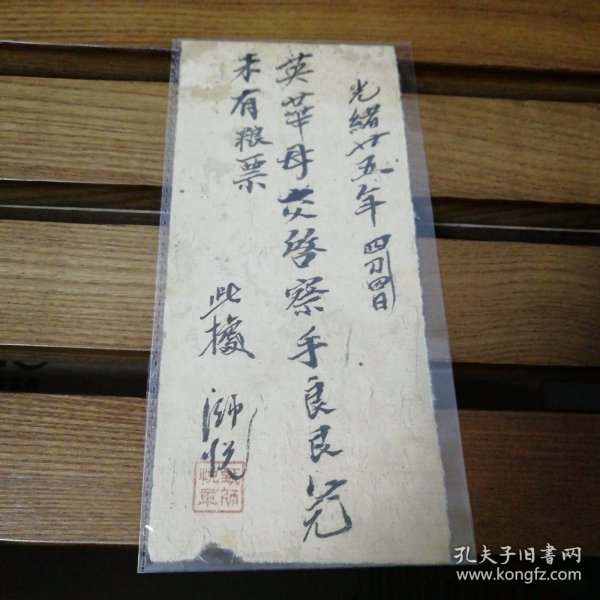 光緒廿五年 四月四日
英華母交啓察手良艮
未有粮票
此據 師悦
孔夫子旧书网
www.kongfz.com